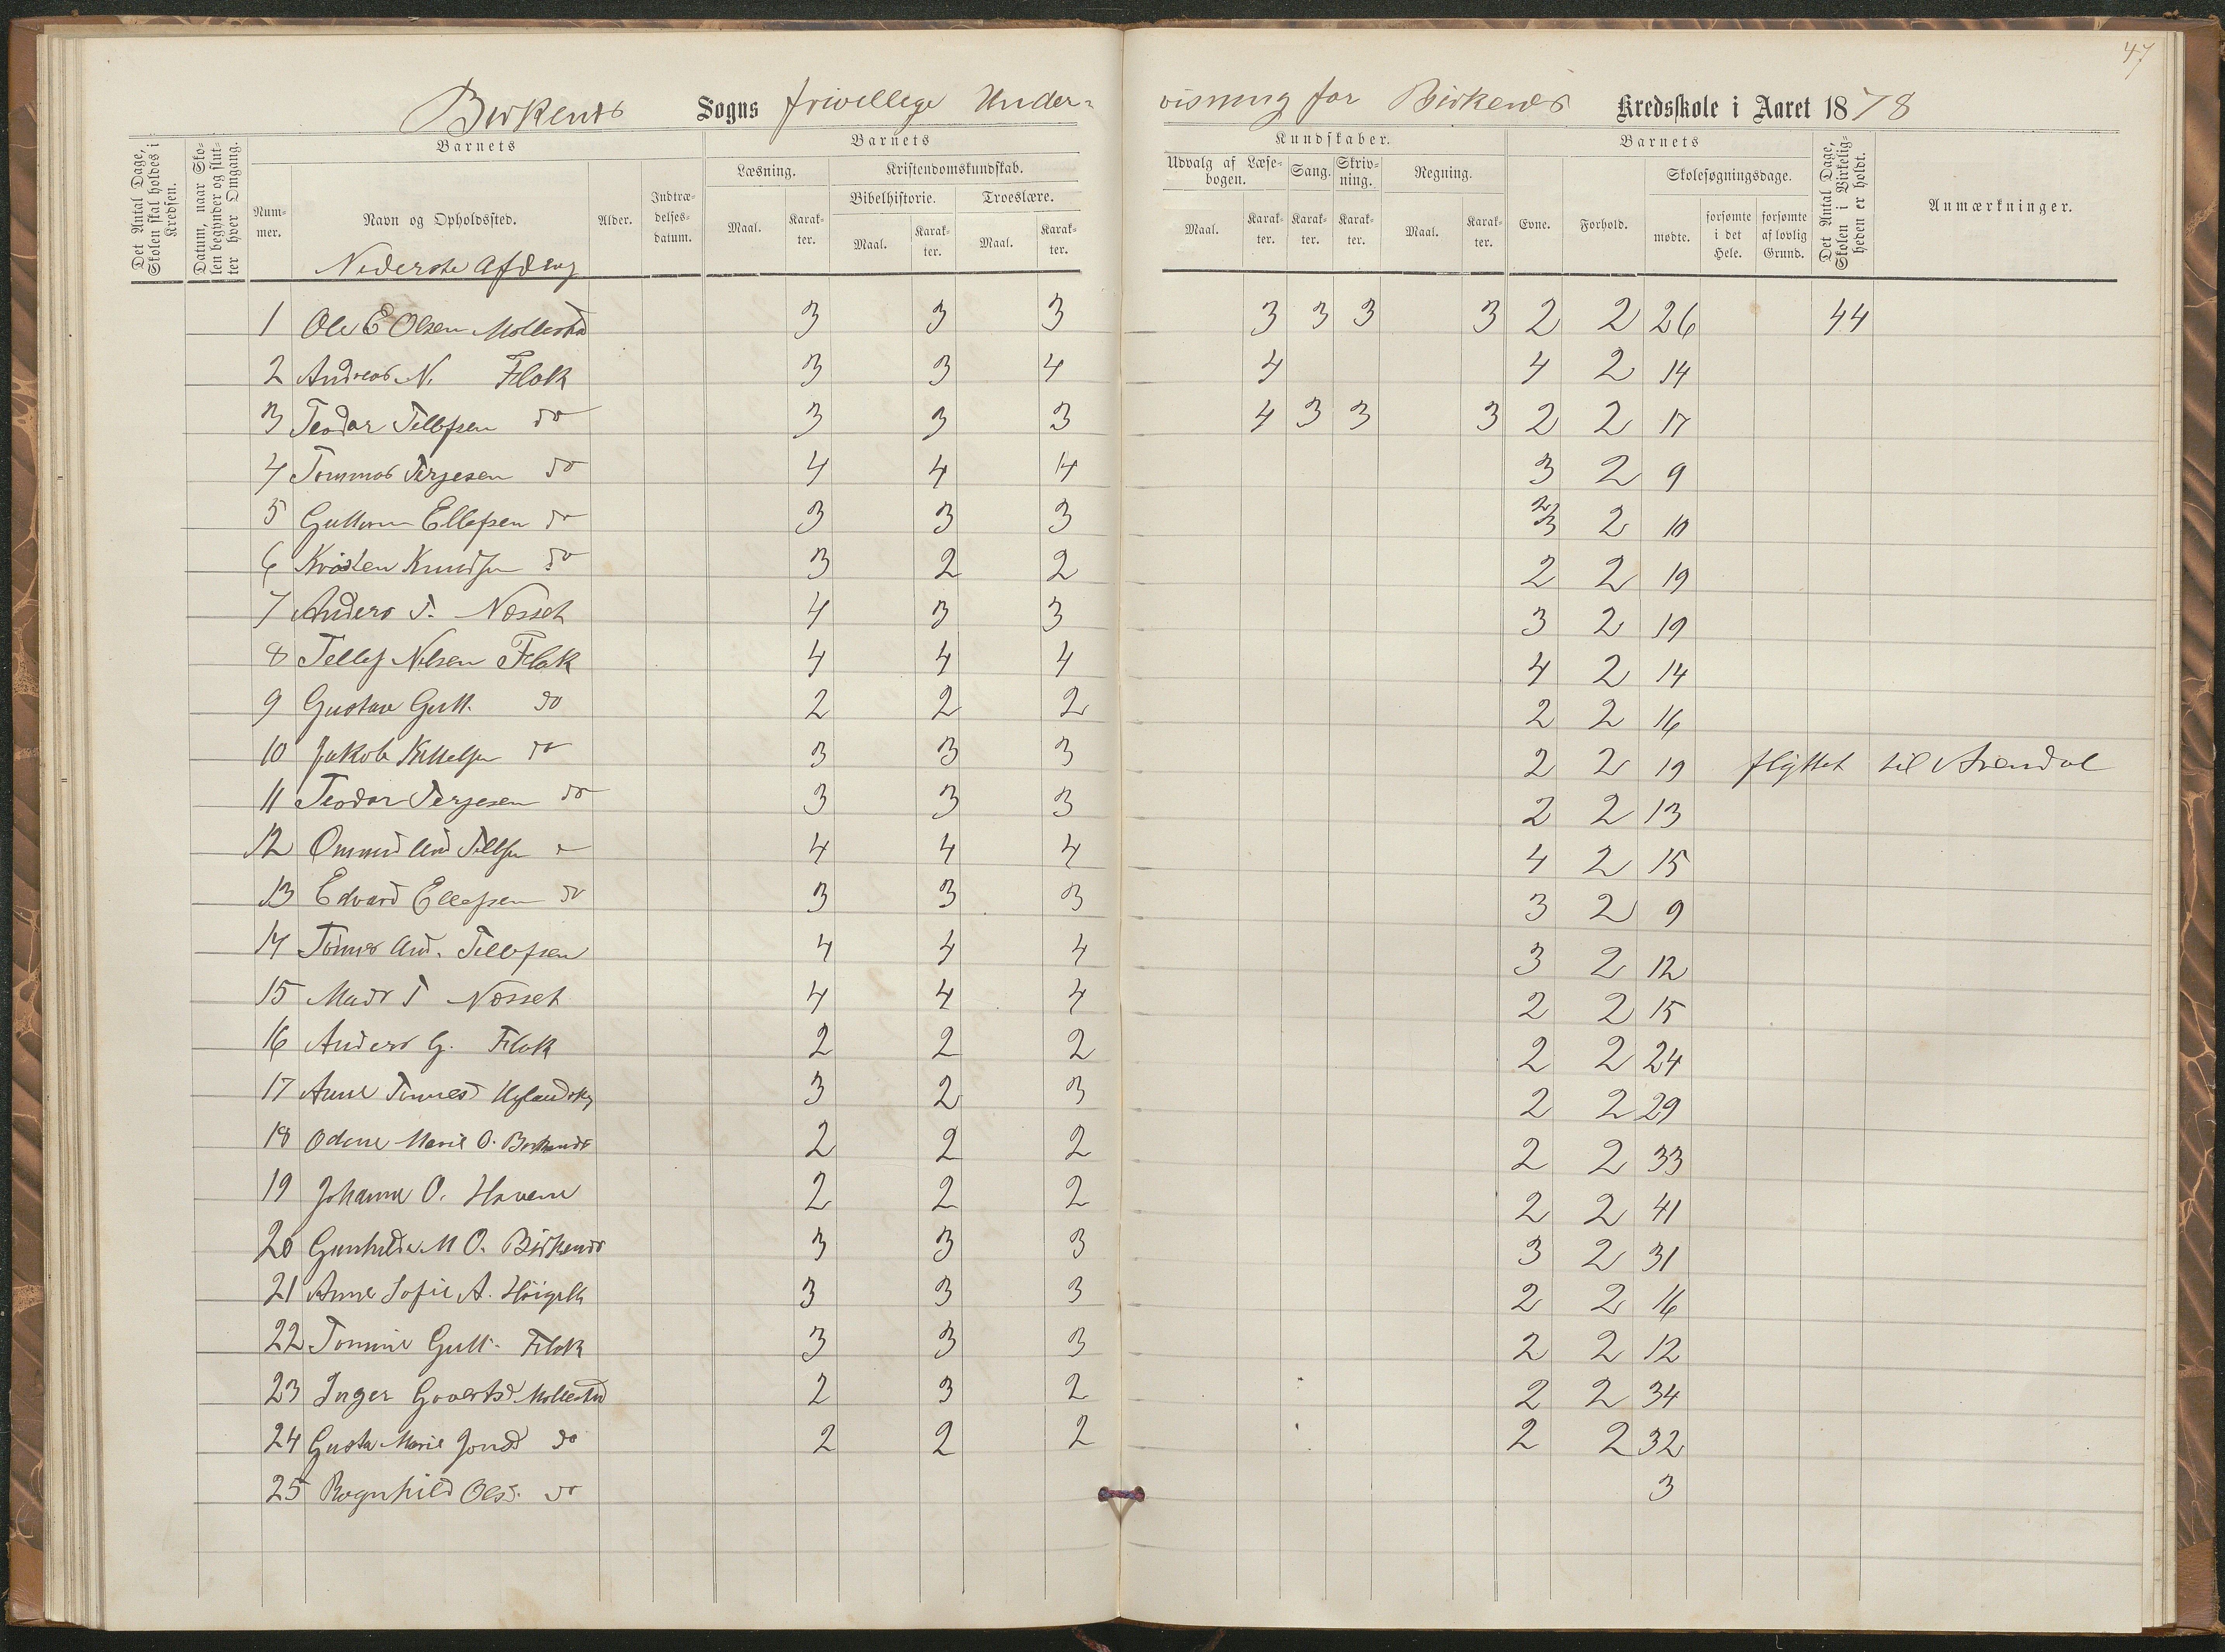 47
Birkenes Sogns frivillige Under- visning for Birkenes Kredsskole i Aaret 1878
Det Antal Dage, Skolen skal holdes i Kredsen.
Datum, naar Skolen begynder og slutter hver Omgang.
Barnets
Nummer.
Navn og Opholdssted.
Alder.
Indtrædelsesdatum.
Barnets
Læsning.
Maal. Karakter.
Kristendomskundskab.
Bibelhistorie. Troeslære.
Maal. Karakter. Maal. Karakter.
Kundskaber.
Udvalg af Læsebogen. Sang. Skrivning. Regning.
Maal. Karakter. Karakter. Karakter. Maal. Karakter.
Barnets
Evne. Forhold.
Skolesøgningsdage.
mødte. forsømte i det Hele. forsømte af lovlig Grund.
Det Antal Dage, Skolen i Virkeligheden er holdt.
Anmærkninger.
Nederste Afdeling
1 Ole E Olsen Mollestad 3 3 3 3 3 3 3 2 2 26 44
2 Andreas N. Flak 3 3 4 4 4 2 14
3 Teodor Tellefsen do 3 3 3 4 3 3 3 2 2 17
4 Tommas Terjesen do 4 4 4 3 2 9
5 Guttorm Ellefsen do 3 3 3 3 2 10
6 Kristen Knudsen do 3 2 2 2 2 19
7 Anders T. Næsset 4 3 3 3 2 19
8 Tellef Nilsen Flak 4 4 4 4 2 14
9 Gustav Gutt. do 2 2 2 2 2 16
10 Jakob Kittelsen do 3 3 3 2 2 19 flyttet til Arendal
11 Teodor Terjesen do 3 3 3 2 2 13
12 And Tellefsen do 4 4 4 4 2 15
13 Edvard Ellefsen do 3 3 3 3 2 9
14 And. Tellefsen 4 4 4 3 2 12
15 Mads T Næsset 4 4 4 2 2 15
16 Anders G. Flak 2 2 2 2 2 24
17 Anne 3 2 3 2 2 29
18 Odine Marie O. Birkenes 2 2 2 2 2 33
19 Johanne O. Haven 2 2 2 2 2 41
20 Gunhilde M O. Birkenes 3 3 3 3 2 31
21 Anne Sofie A. 3 3 3 2 2 16
22 Tomine Gutt. Flak 3 3 3 2 2 12
23 Inger Govertsd Mollestad 2 3 2 2 2 34
24 Gusta Marie Jonsd do 2 2 2 2 2 32
25 Ragnhild Olsd. do 3